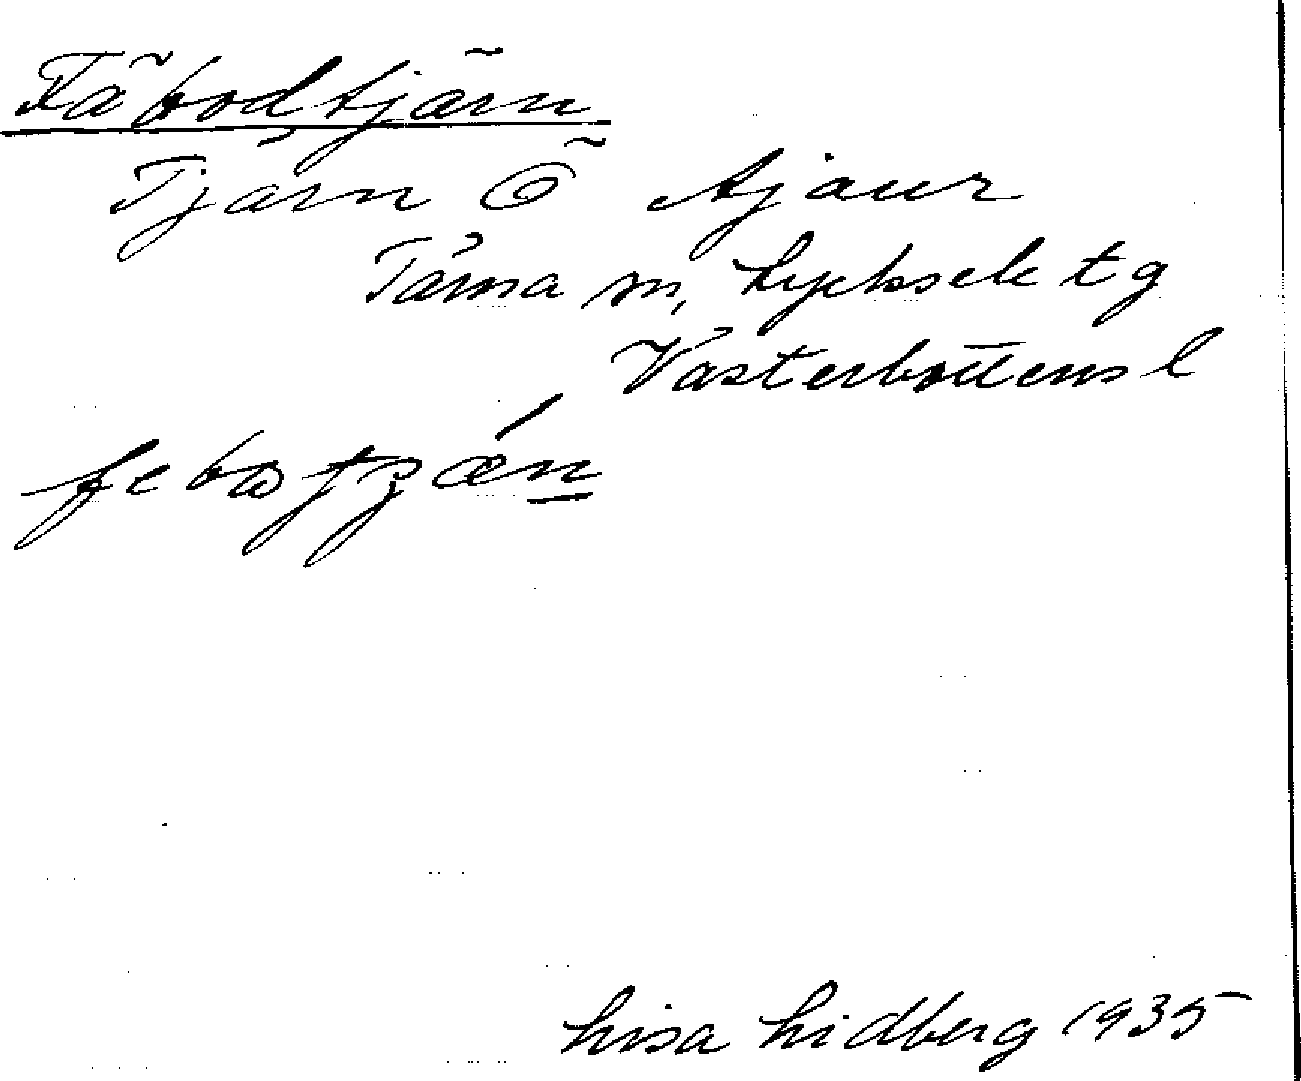 Fäbodtjärn
Tjärn Ö Ajaur
Tärna sn, Lycksele tg
Västerbottens l
febotjǽn
Lisa Lidberg 1935